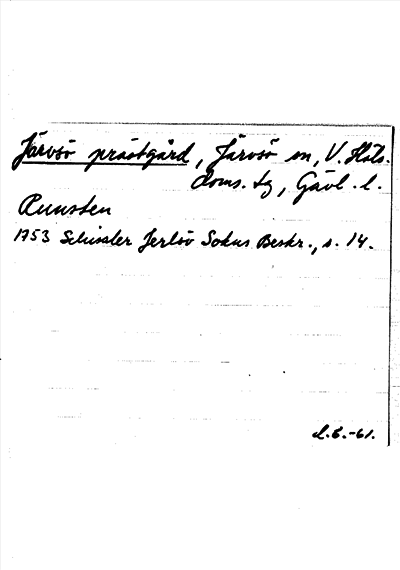 Järvsö prästgård, Järvsö sn, V. Häls.
doms. tg, Gävl. l.
Runsten
1753 Schissler Jerlsö Sokns Beskr., s. 14.
-61.